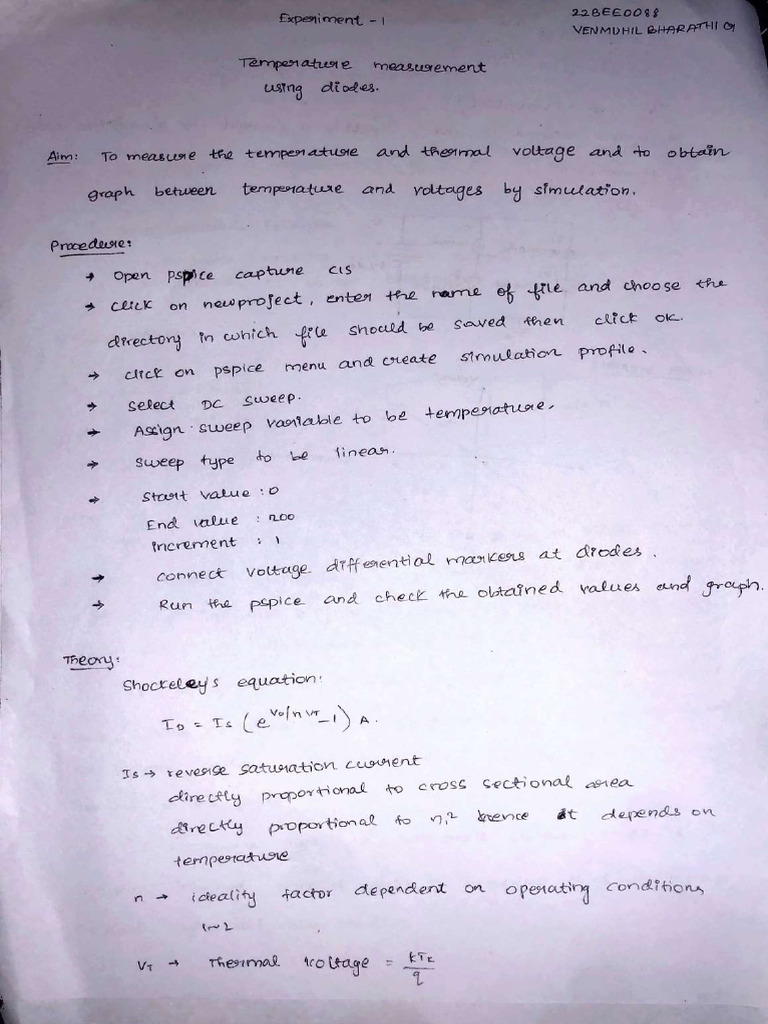 Experiment - 1
22BEE0088
VENMUHIL BHARATHI G
Temperature measurement
using diodes.
Aim: To measure the temperature and thermal voltage and to obtain
graph between temperature and voltages by simulation.
Procedure:
→ Open pspice capture CIS
→ click on newproject, enter the name of file and choose the
directory in which file should be saved then click ok.
→ click on pspice menu and create simulation profile.
→ select DC sweep.
→ Assign sweep variable to be temperature.
→ sweep type to be linear.
→ start value : 0
End value : 200
increment : 1
→ connect voltage differential markers at diodes.
→ Run the pspice and check the obtained values and graph.
Theory:
Shockeley's equation:
I_D = I_S (e^{V_D/nV_T} - 1) A.
I_S → reverse saturation current
directly proportional to cross sectional area
directly proportional to n_i^2 hence it depends on
temperature
n → ideality factor dependent on operating conditions
1~2
V_T → Thermal voltage = kT_K/q